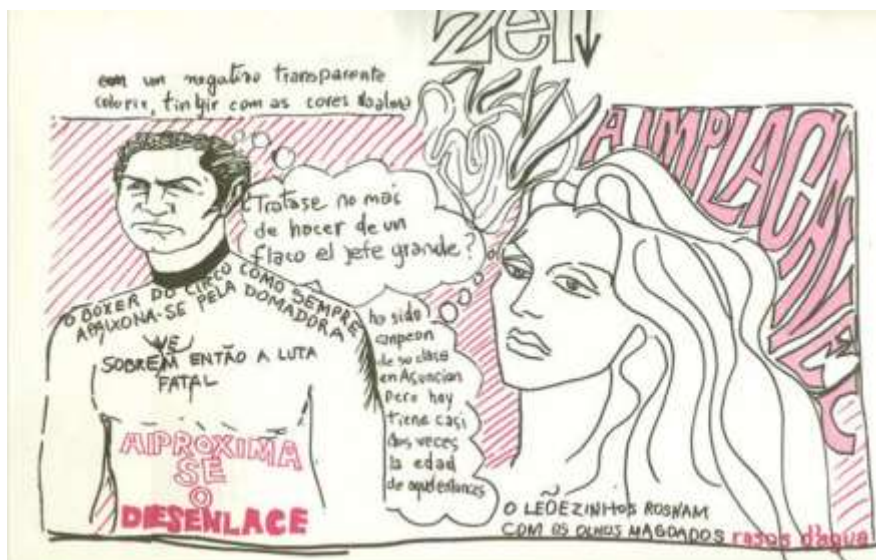 zell
com um negativo transparente
colorir, tingir com as cores
A IMPLACAVEL
Tratase no mais
de hacer de un
flaco el jefe grande?
O BOXER DO CIRCO COMO SEMPRE
APAIXONA-SE PELA DOMADORA
SOBREVEM ENTÃO A LUTA
FATAL
APROXIMA
SE
O
DESENLACE
ha sido
campeon
de su clase
en Asuncion
Pero hoy
tiene casi
dos veces
la edad
de aquel entonces
O LEÕEZINHOS ROSNAM
COM OS OLHOS MAGOADOS rasos d'agua